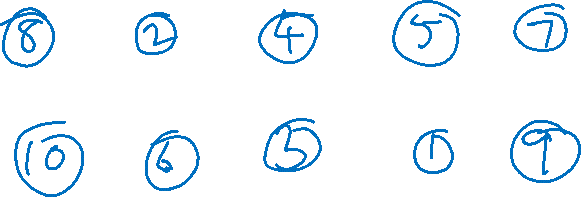 8 2 4 5 7
10 6 3 1 9